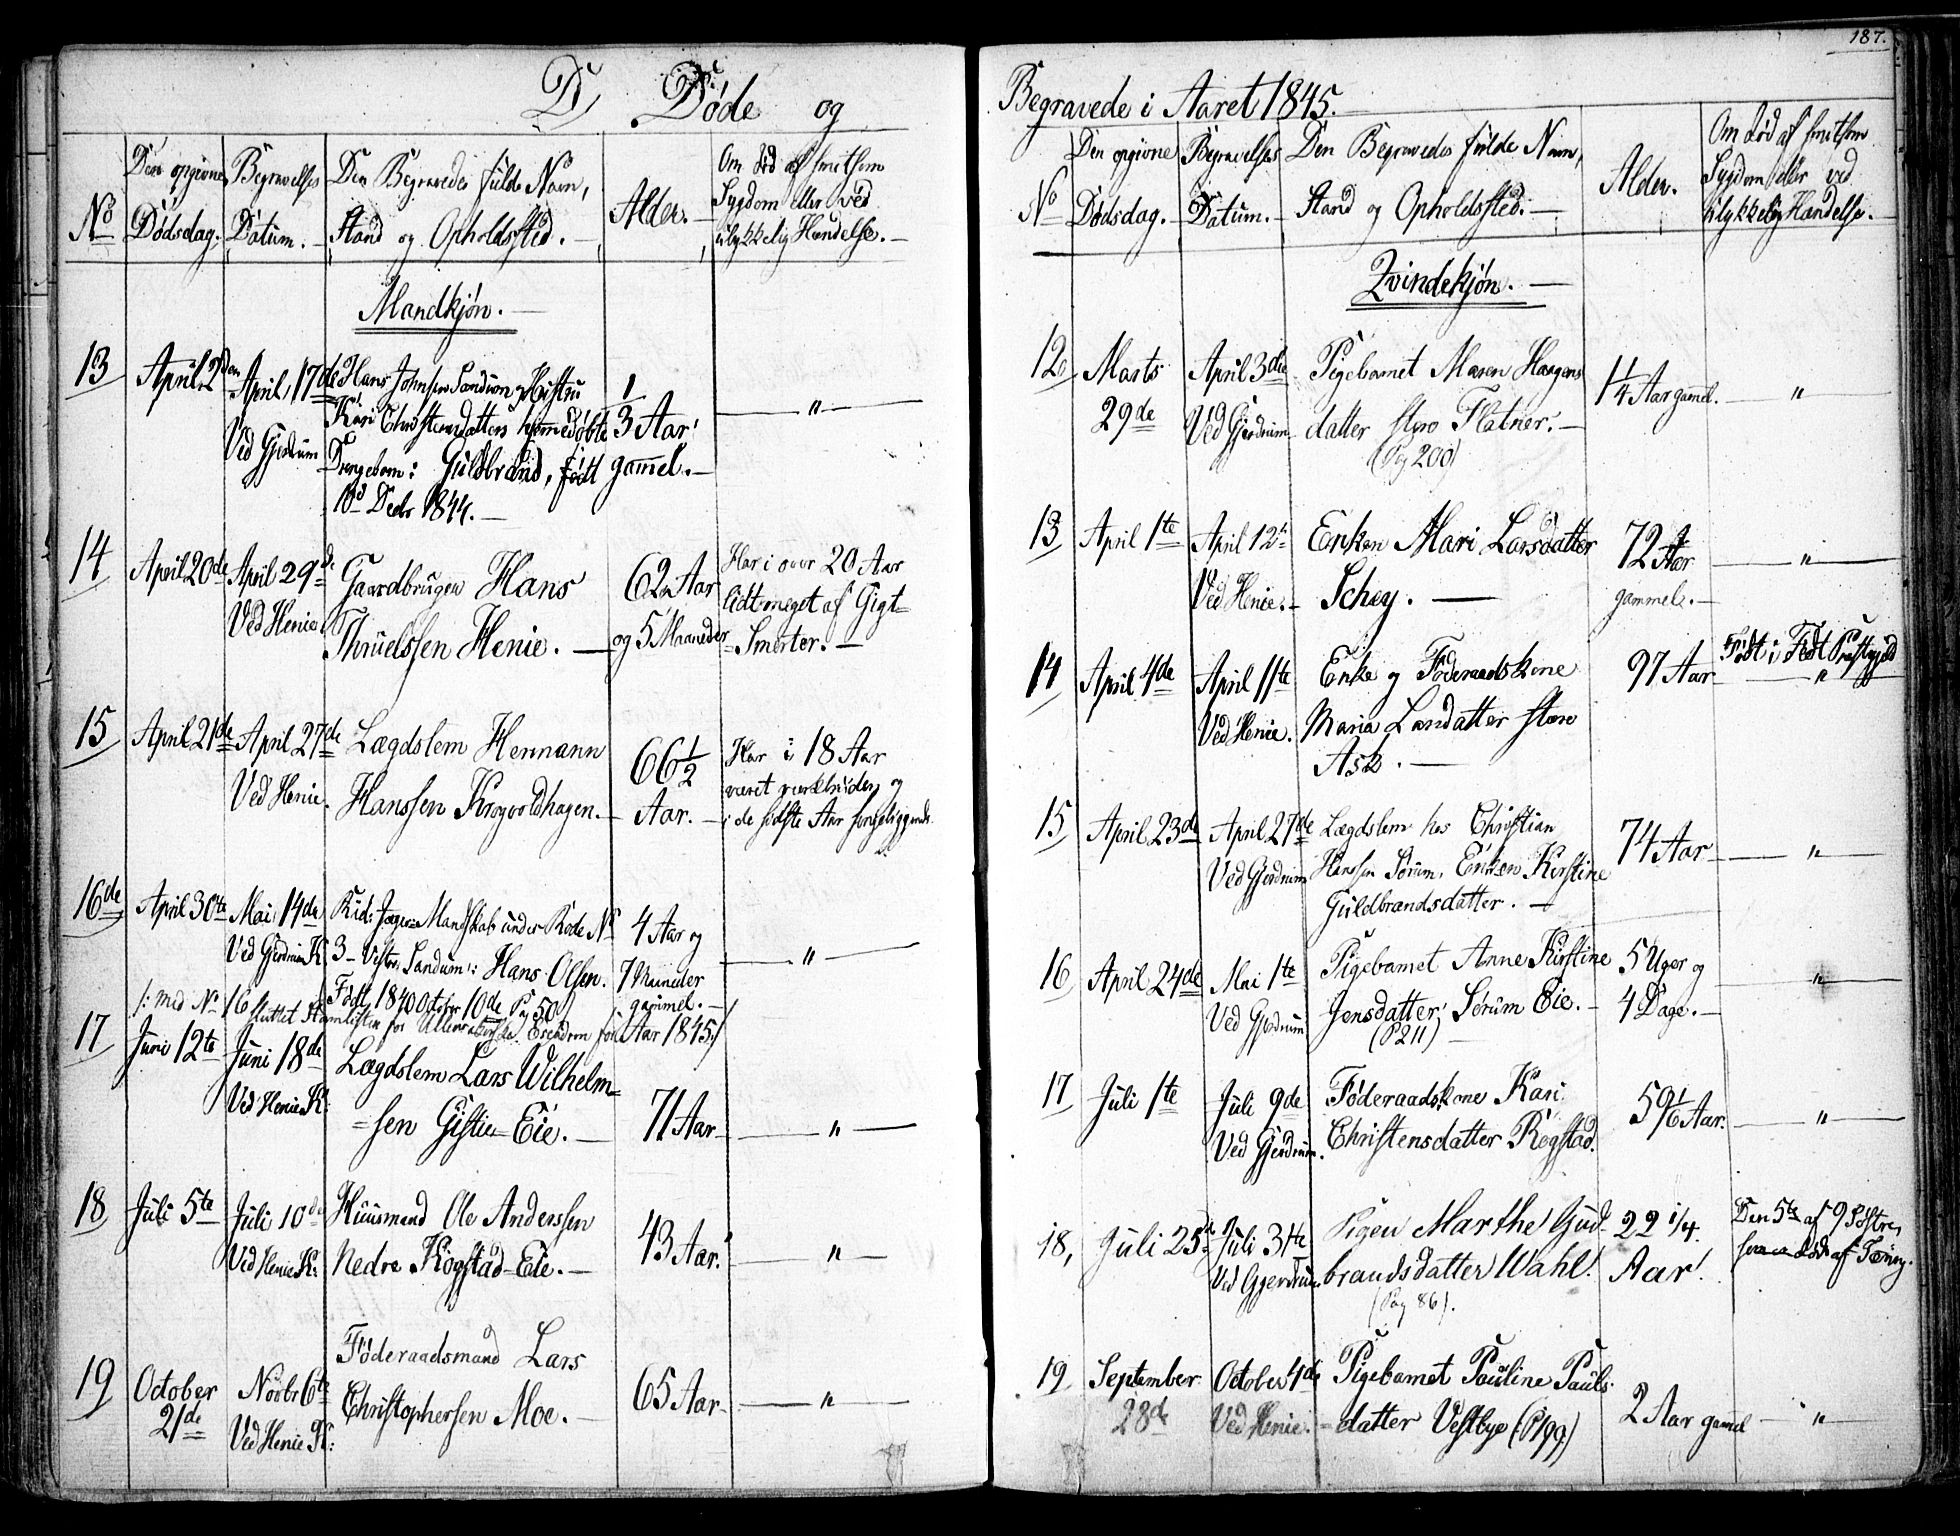 187.
D, Døde og
Begravede i Aaret 1845.
No
Den opgivne Dødsdag.
Begravelses Datum.
Den Begravedes fulde Navn, Stand og Opholdssted.
Alder.
Om død af smitsom Sygdom eller ved ulykkelig Hændelse.
Mandkjøn.
13
April 2den
April 17de
Ved Gjerdrum
Hans Johnsen Sandum og Hustru
Kari Christensdatters hjemmedøbte
Drengebarn: Guldbrand, født
10d Decbr 1844.
1/3 Aar
gammel.
"
14
April 20de
April 29d
Ved Henie.
Gaardbruger Hans
Thruelssen Henie.
62 Aar
og 5 Maaneder
Har i over 20 Aar
lidt meget af Gigt-
Smerter.
15
April 21de
April 27de
Ved Henie.
Lægdslem Hermann
Hanssen Krogvoldhagen.
66 1/2
Aar.
Har i 18 Aar
været værkbruden og
i de sidste Aar sengeliggende.
16de
April 30te
Mai 14de
Ved Gjerdrum K.
Rid: Jæger Mandskab under Rode No
3 - Vestre Sandum: Hans Olsen.
Født 1840 October 10de Pag 50)
4 Aar og
7 Maaneder
gammel.
"
/: med No 16 sluttet Stamlisten for Ullensakerske Escadron for Aar 1845 :/
17
Juni 12te
Juni 18de
Ved Henie K:
Lægdslem Lars Wilhelm-
sen Gistie-Eie.
71 Aar
"
18
Juli 5te
Juli 10de
Ved Henie K:
Huusmand Ole Anderssen
Nedre Rogstad-Eie.
43 Aar.
"
19
October
21de
Novbr 6te
Ved Henie K:
Føderaadsmand Lars
Christophersen Moe.
65 Aar
"
No
Den opgivne Dødsdag.
Begravelses Datum.
Den Begravedes fulde Navn, Stand og Opholdssted.
Alder.
Om død af smitsom Sygdom eller ved ulykkelig Hændelse.
Qvindekjøn.
12
Marts
29de
April 3die
Ved Gjerdrum
Pigebarnet Maren Haagens
datter Flatner.
(Pag 200)
1 1/4 Aar gamel.
"
13
April 1te
April 12te
Ved Henie.
Enken Mari Larsdatter
Schey.
72 Aar
gammel.
"
14
April 4de
April 11te
Ved Henie.
Enke og Føderaadskone
Maria Larsdatter store
Ask.
97 Aar
Født i Fet Præstegjeld
"
15
April 23de
April 27de
Ved Gjerdrum
Lægdslem hos Christian
Hanssen Sørum, Enken Kirstine
Guldbrandsdatter.
74 Aar
"
16
April 24de
Mai 1te
Ved Gjerdrum
Pigebarnet Anne Kirstine
Jensdatter, Sørum Eie.
(P 211)
5 Uger og
4 Dage.
"
17
Juli 1te
Juli 9de
Ved Gjerdrum.
Føderaadskone Kari
Christensdatter Rogstad.
59 1/6 Aar.
"
18,
Juli 25de
Juli 31te
Ved Gjerdrum
Pigen Marthe Gud-
brandsdatter Wahl.
(Pag 86).
22 1/4.
Aar.
Den 5te af 9 Søstre,
som er døde af Tæring.
19
September
28de
October 4de
Ved Henie.
Pigebarnet Pauline Pauls-
datter Vestbye (P 199)
2 Aar gamel
"